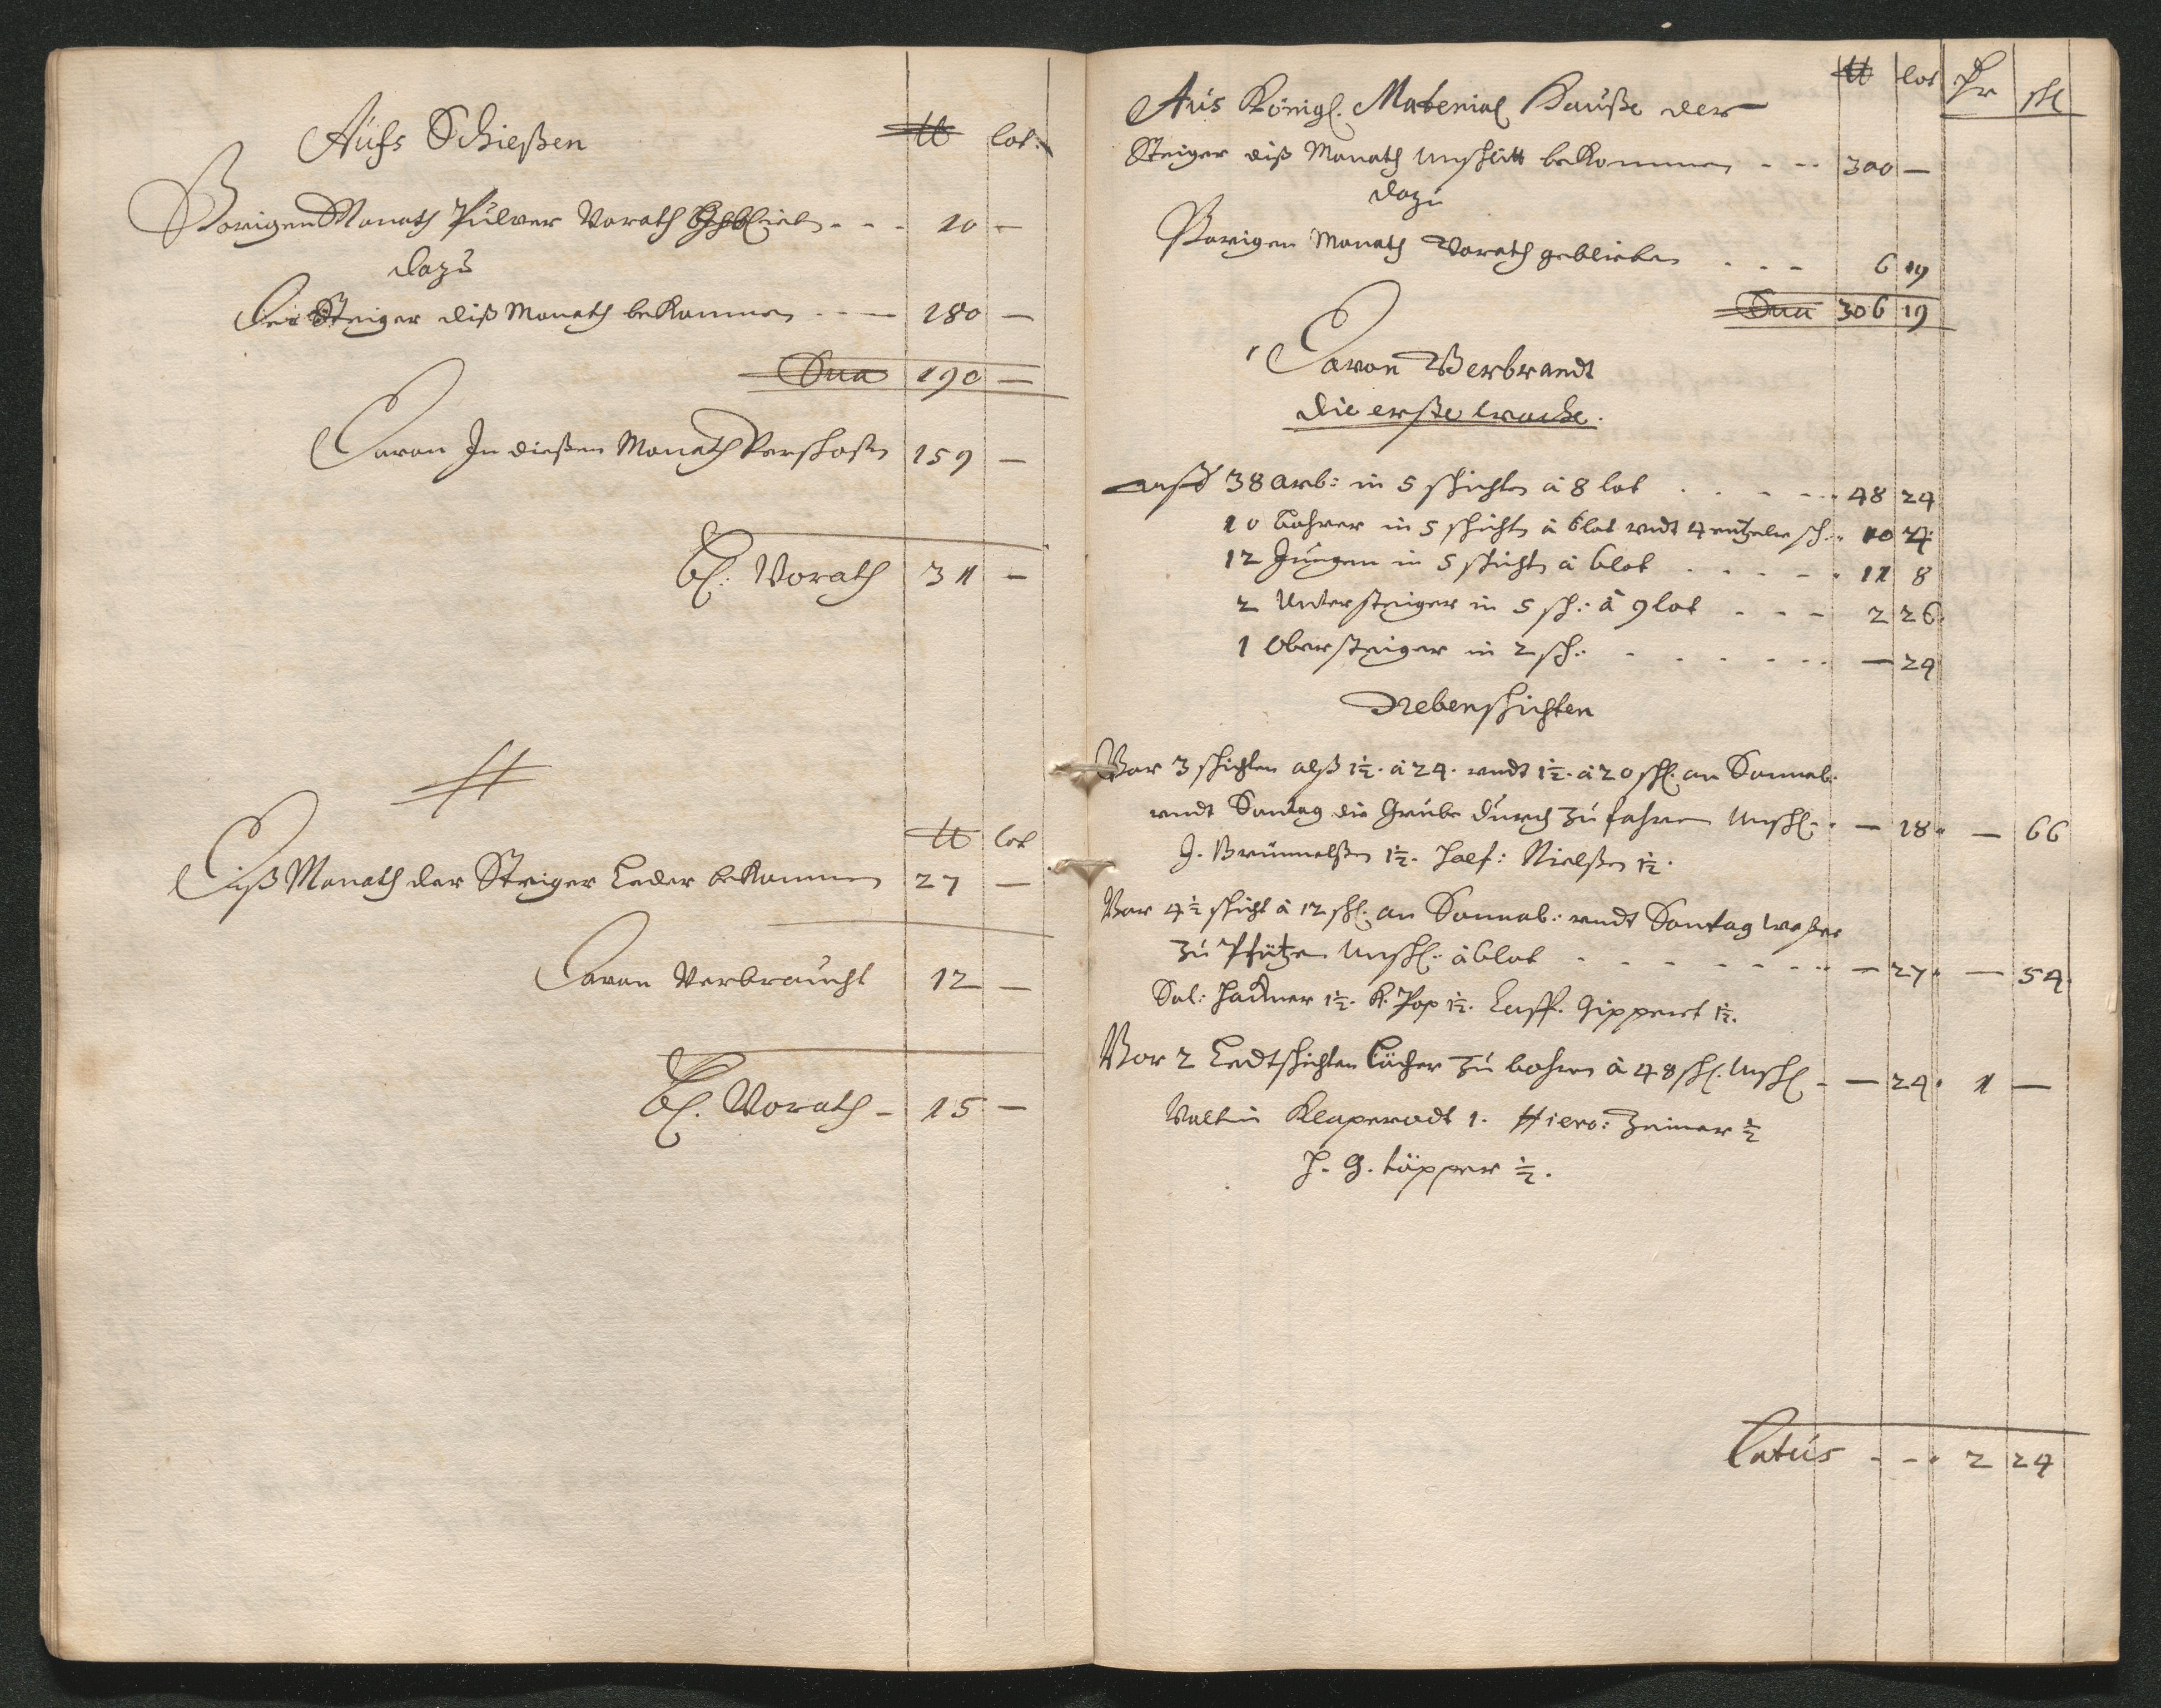 Aufs Schießen ℔ lot:
Vorigen Monath Pulver Vorath - - - 10 -
Dazu
Der Steiger diß Monath bekommen - - - 180 -
Sua 190 -
Davon In dießen Monath Verschoßen 159 -
Bl: Vorath 31 -
℔ lot
Diß Monath der Steiger Leder bekommen 27 -
Davon Verbraucht 12 -
Bl. Vorath - 15 -
Aus Königl. Material Hauße der ℔ lot
Steiger diß Monath Unschlitt bekommen - - - 300 -
Dazu
Vorigen Monath Vorath geblieben - - - 6 19
Sua 306 19
Davon Verbrandt
Die erste woche.
auff 38 arb: in 5 schichten à 8 lot - - - 48 24
10 Bohrer in 5 schichten à 6 lot undt 4 eintzelne sch: 10 4
12 Jungen in 5 schichten à 6 lot - - - 11 8
2 Untersteiger in 5 sch: à 9 lot - - - 2 26
1 Obersteiger in 2 sch: - - - - 24
Nebenschichten
Vor 3 schichten alß 1½. à 24. undt 1½. à 20 schl. an Sonnab:
undt Sontag die Grube durch zu fahren Unschl: - 18 - 66
J. 1½. Half: Nielßen 1½.
Vor 4½ schicht à 12 schl. an Sonnab: undt Sontag waßer
zu Pfützen Unschl: à 6 lot - - - - 27 - 54
Sal: Hackner 1½. K. Pop 1½. Gippert 1½.
Vor 2 Ledtschichten Löcher zu bohren à 48 schl. Unschl - - 24 1 -
Valtin Klaperodt 1. Hiero: Zeiner ½
H. G. Töpper ½.
Latus - - - 2 24